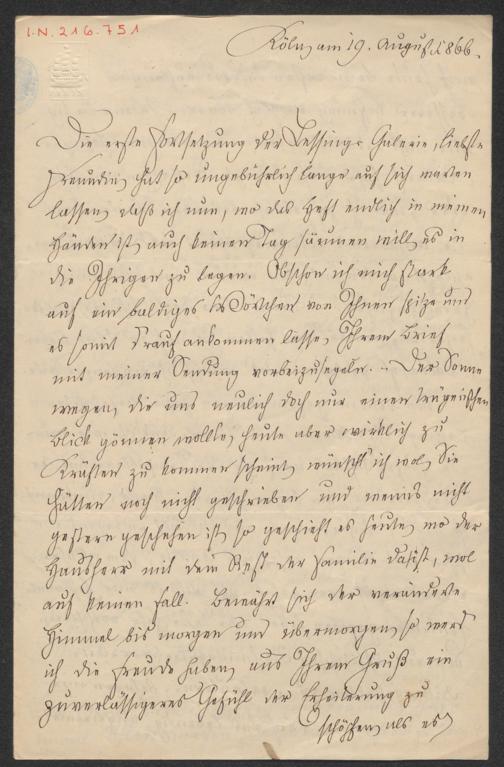 I.N. 216.751
Köln, am 19. August 1866.
Die erste Fortsetzung der Lessing-Galerie, liebste
Freundin, hat so ungebührlich lange auf sich warten
lassen, daß ich nun, wo das Heft endlich in meinen
Händen ist, auch keinen Tag säumen will, es in
die Ihrigen zu legen. Obschon ich mich stark
auf ein baldiges Wörtchen von Ihnen spitze und
es somit drauf ankommen lasse, Ihrem Brief
mit meiner Sendung vorbeizusegeln. – Der Sonne
wegen, die uns neulich doch nur einen trügerischen
Blick gönnen wollte, heute aber wirklich zu
Kräften zu kommen scheint, wünscht ich wol, Sie
hätten noch nicht geschrieben und wenn's nicht
gestern geschehen ist, so geschieht es heute, wo der
Hausherr mit dem Rest der Familie dasist, wol
auf keinen Fall. Bewährt sich der veränderte
Himmel bis morgen und übermorgen, so werd
ich die Freude haben, aus Ihrem Gruß ein
zuverlässigeres Gefühl der Erheiterung zu
schöpfen, als es